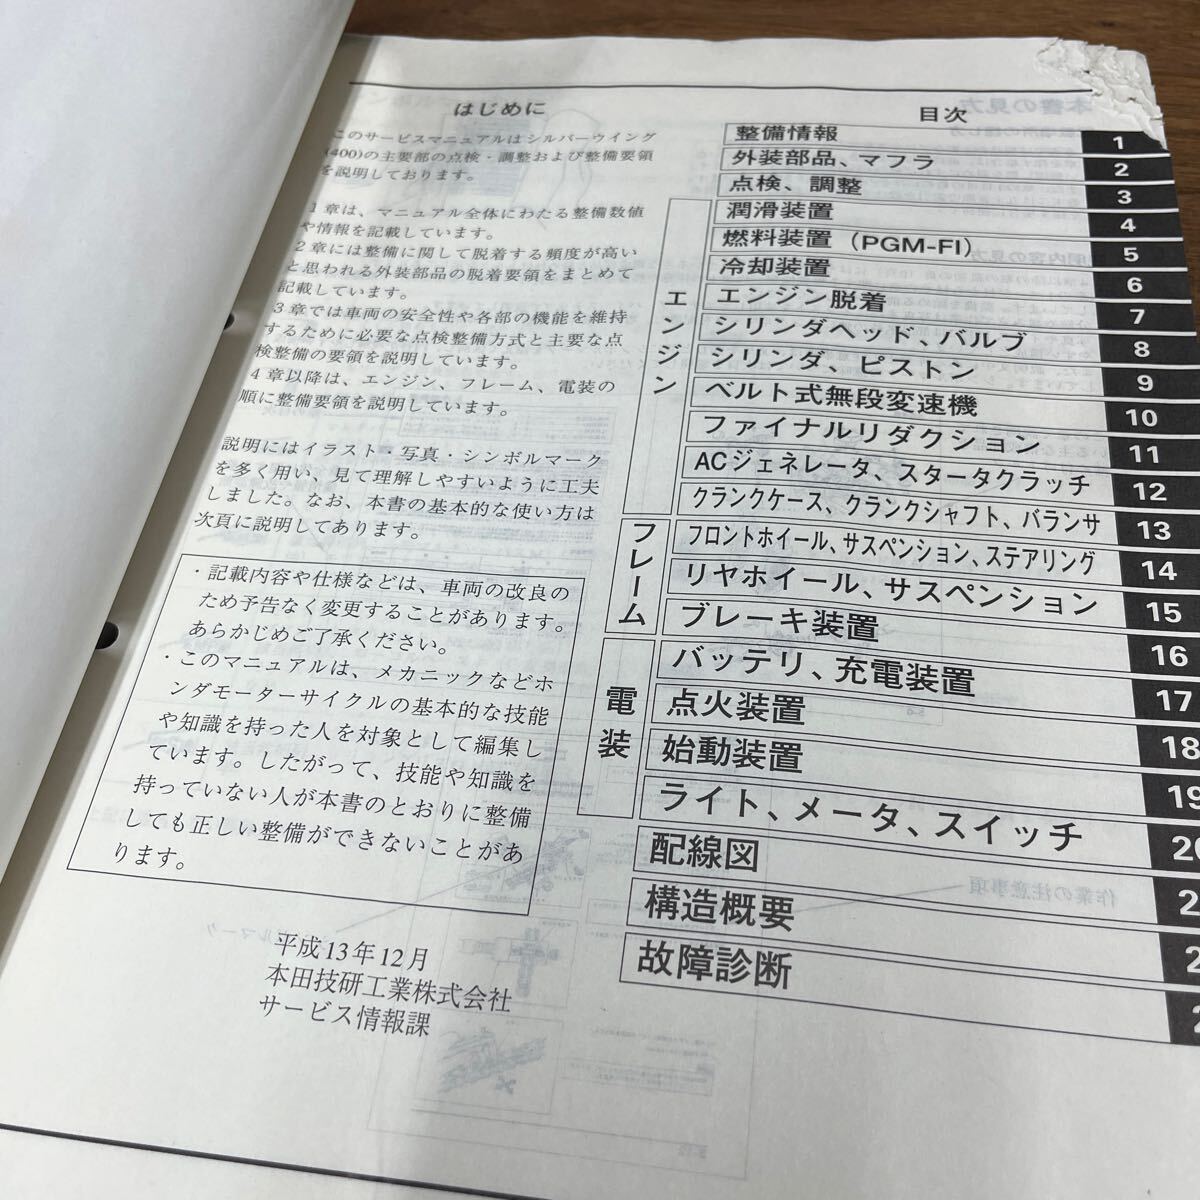 はじめに
このサービスマニュアルはシルバーウイング
(400)の主要部の点検・調整および整備要領
を説明しております。
1章は、マニュアル全体にわたる整備数値
や情報を記載しています。
2章には整備に関して脱着する頻度が高い
と思われる外装部品の脱着要領をまとめて
記載しています。
3章では車両の安全性や各部の機能を維持
するために必要な点検整備方式と主要な点
検整備の要領を説明しています。
4章以降は、エンジン、フレーム、電装の
順に整備要領を説明しています。
説明にはイラスト・写真・シンボルマーク
を多く用い、見て理解しやすいように工夫
しました。なお、本書の基本的な使い方は
次頁に説明してあります。
・記載内容や仕様などは、車両の改良の
ため予告なく変更することがあります。
あらかじめご了承ください。
・このマニュアルは、メカニックなどホ
ンダモーターサイクルの基本的な技能
や知識を持った人を対象として編集し
ています。したがって、技能や知識を
持っていない人が本書のとおりに整備
しても正しい整備ができないことがあ
ります。
平成13年12月
本田技研工業株式会社
サービス情報課
目次
整備情報 1
外装部品、マフラ 2
点検、調整 3
エンジン
潤滑装置 4
燃料装置(PGM-FI) 5
冷却装置 6
エンジン脱着 7
シリンダヘッド、バルブ 8
シリンダ、ピストン 9
ベルト式無段変速機 10
ファイナルリダクション 11
ACジェネレータ、スタータクラッチ 12
クランクケース、クランクシャフト、バランサ 13
フレーム
フロントホイール、サスペンション、ステアリング 14
リヤホイール、サスペンション 15
ブレーキ装置 16
電装
バッテリ、充電装置 17
点火装置 18
始動装置 19
ライト、メータ、スイッチ 20
配線図 2
構造概要 2
故障診断 2